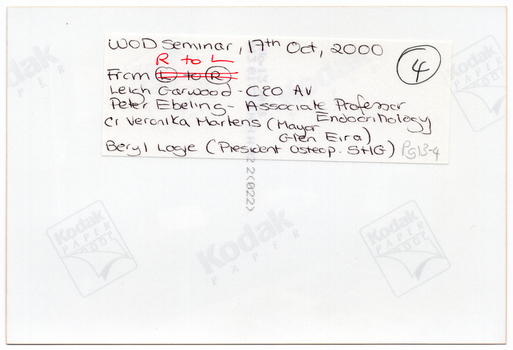 WOD Seminar, 17th Oct, 2000
R to L
From L to R
Leigh Garwood - CEO AV
Peter Ebeling - Associate Professor
Endocrinology
Cr Veronika Martens (Mayor
Glen Eira)
Beryl Logie (President Osteop. SHG)
PG13-4
4
2(022)
Kodak
PAPER
Kodak
PAPER
Kodak
PAPER
Kodak
PAPER
Kodak
PAPER